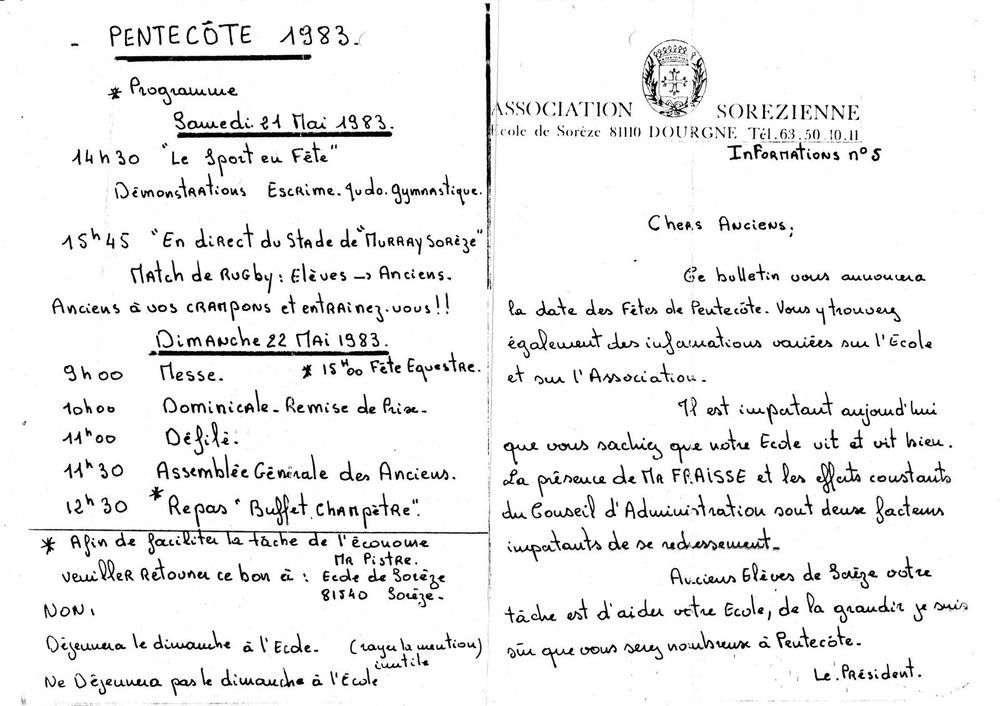 - PENTECÔTE 1983.
* Programme
Samedi 21 Mai 1983.
14h30 "Le Sport en Fête"
Démonstrations Escrime. Judo. Gymnastique.
15h45 "En direct du Stade de "MURRAY SORÈZE"
Match de Rugby: Elèves → Anciens.
Anciens à vos CRAMPONS et entrainez-vous!!
Dimanche 22 Mai 1983.
9h00 Messe. * 15H00 Fête Equestre.
10h00 Dominicale - Remise de Prix -
11h00 Défilé.
11h30 Assemblée Générale des Anciens.
12h30 * Repas "Buffet Champêtre".
* Afin de faciliter la tâche de l'économe
Mr Pistre.
veuiller retouner ce bon à : Ecole de Sorèze
81540 Sorèze -
NOM,
Déjeunera le dimanche à l'Ecole. (rayer la mention)
inutile
Ne Déjeunera pas le dimanche à l'École
ASSOCIATION SOREZIENNE
Ecole de Sorèze 81110 DOURGNE Tél. 63.50.10.11
Informations n°5
Chers Anciens,
Ce bulletin vous annoncera
la date des Fêtes de Pentecôte. Vous y trouverez
également des informations variées sur l'Ecole
et sur l'Association.
Il est important aujourd'hui
que vous sachiez que notre Ecole vit et vit bien.
La présence de Mr FRAISSE et les efforts constants
du Conseil d'Administration sont deux facteurs
importants de se redressement.
Anciens Elèves de Sorèze votre
tâche est d'aider votre Ecole, de la grandir je suis
sûr que vous serez nombreux à Pentecôte.
Le Président.